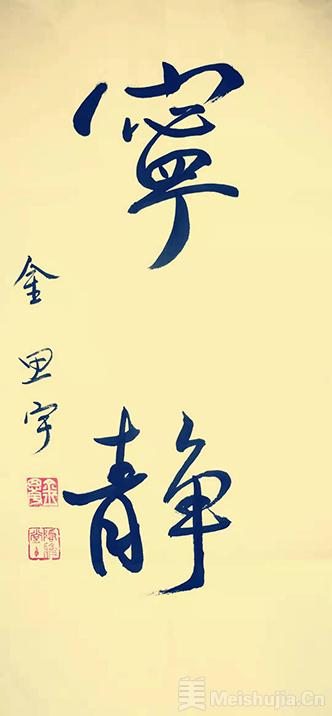 寧静
金思宇
美 Meishujia.Cn